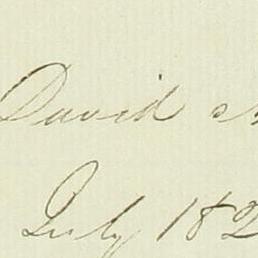 David
July 182